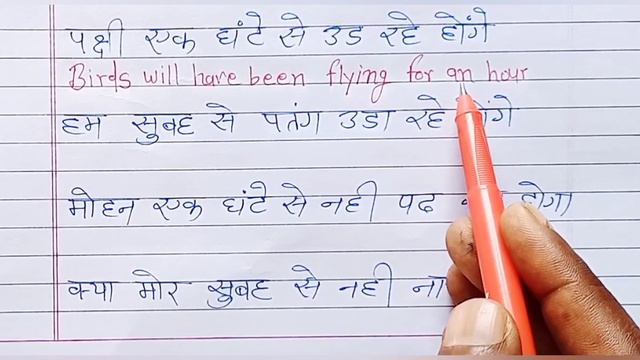 पक्षी एक घंटे से उड रहे होंगे
Birds will have been flying for an hour
हम सुबह से पतंग उडा रहे
मोहन एक घंटे से नही पढ होगा
क्या मोर सुबह से नही